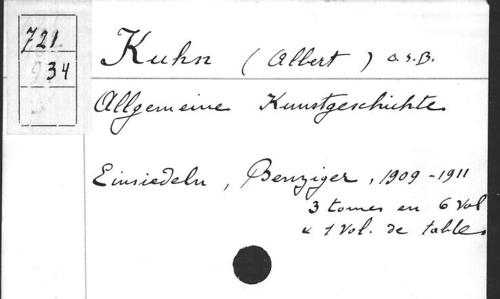 721
934
Kuhn (Albert) O.S.B.
Allgemeine Kunstgeschichte
Einsiedeln, Benziger, 1909-1911
3 tomes en 6 vol
& 1 Vol. de tables